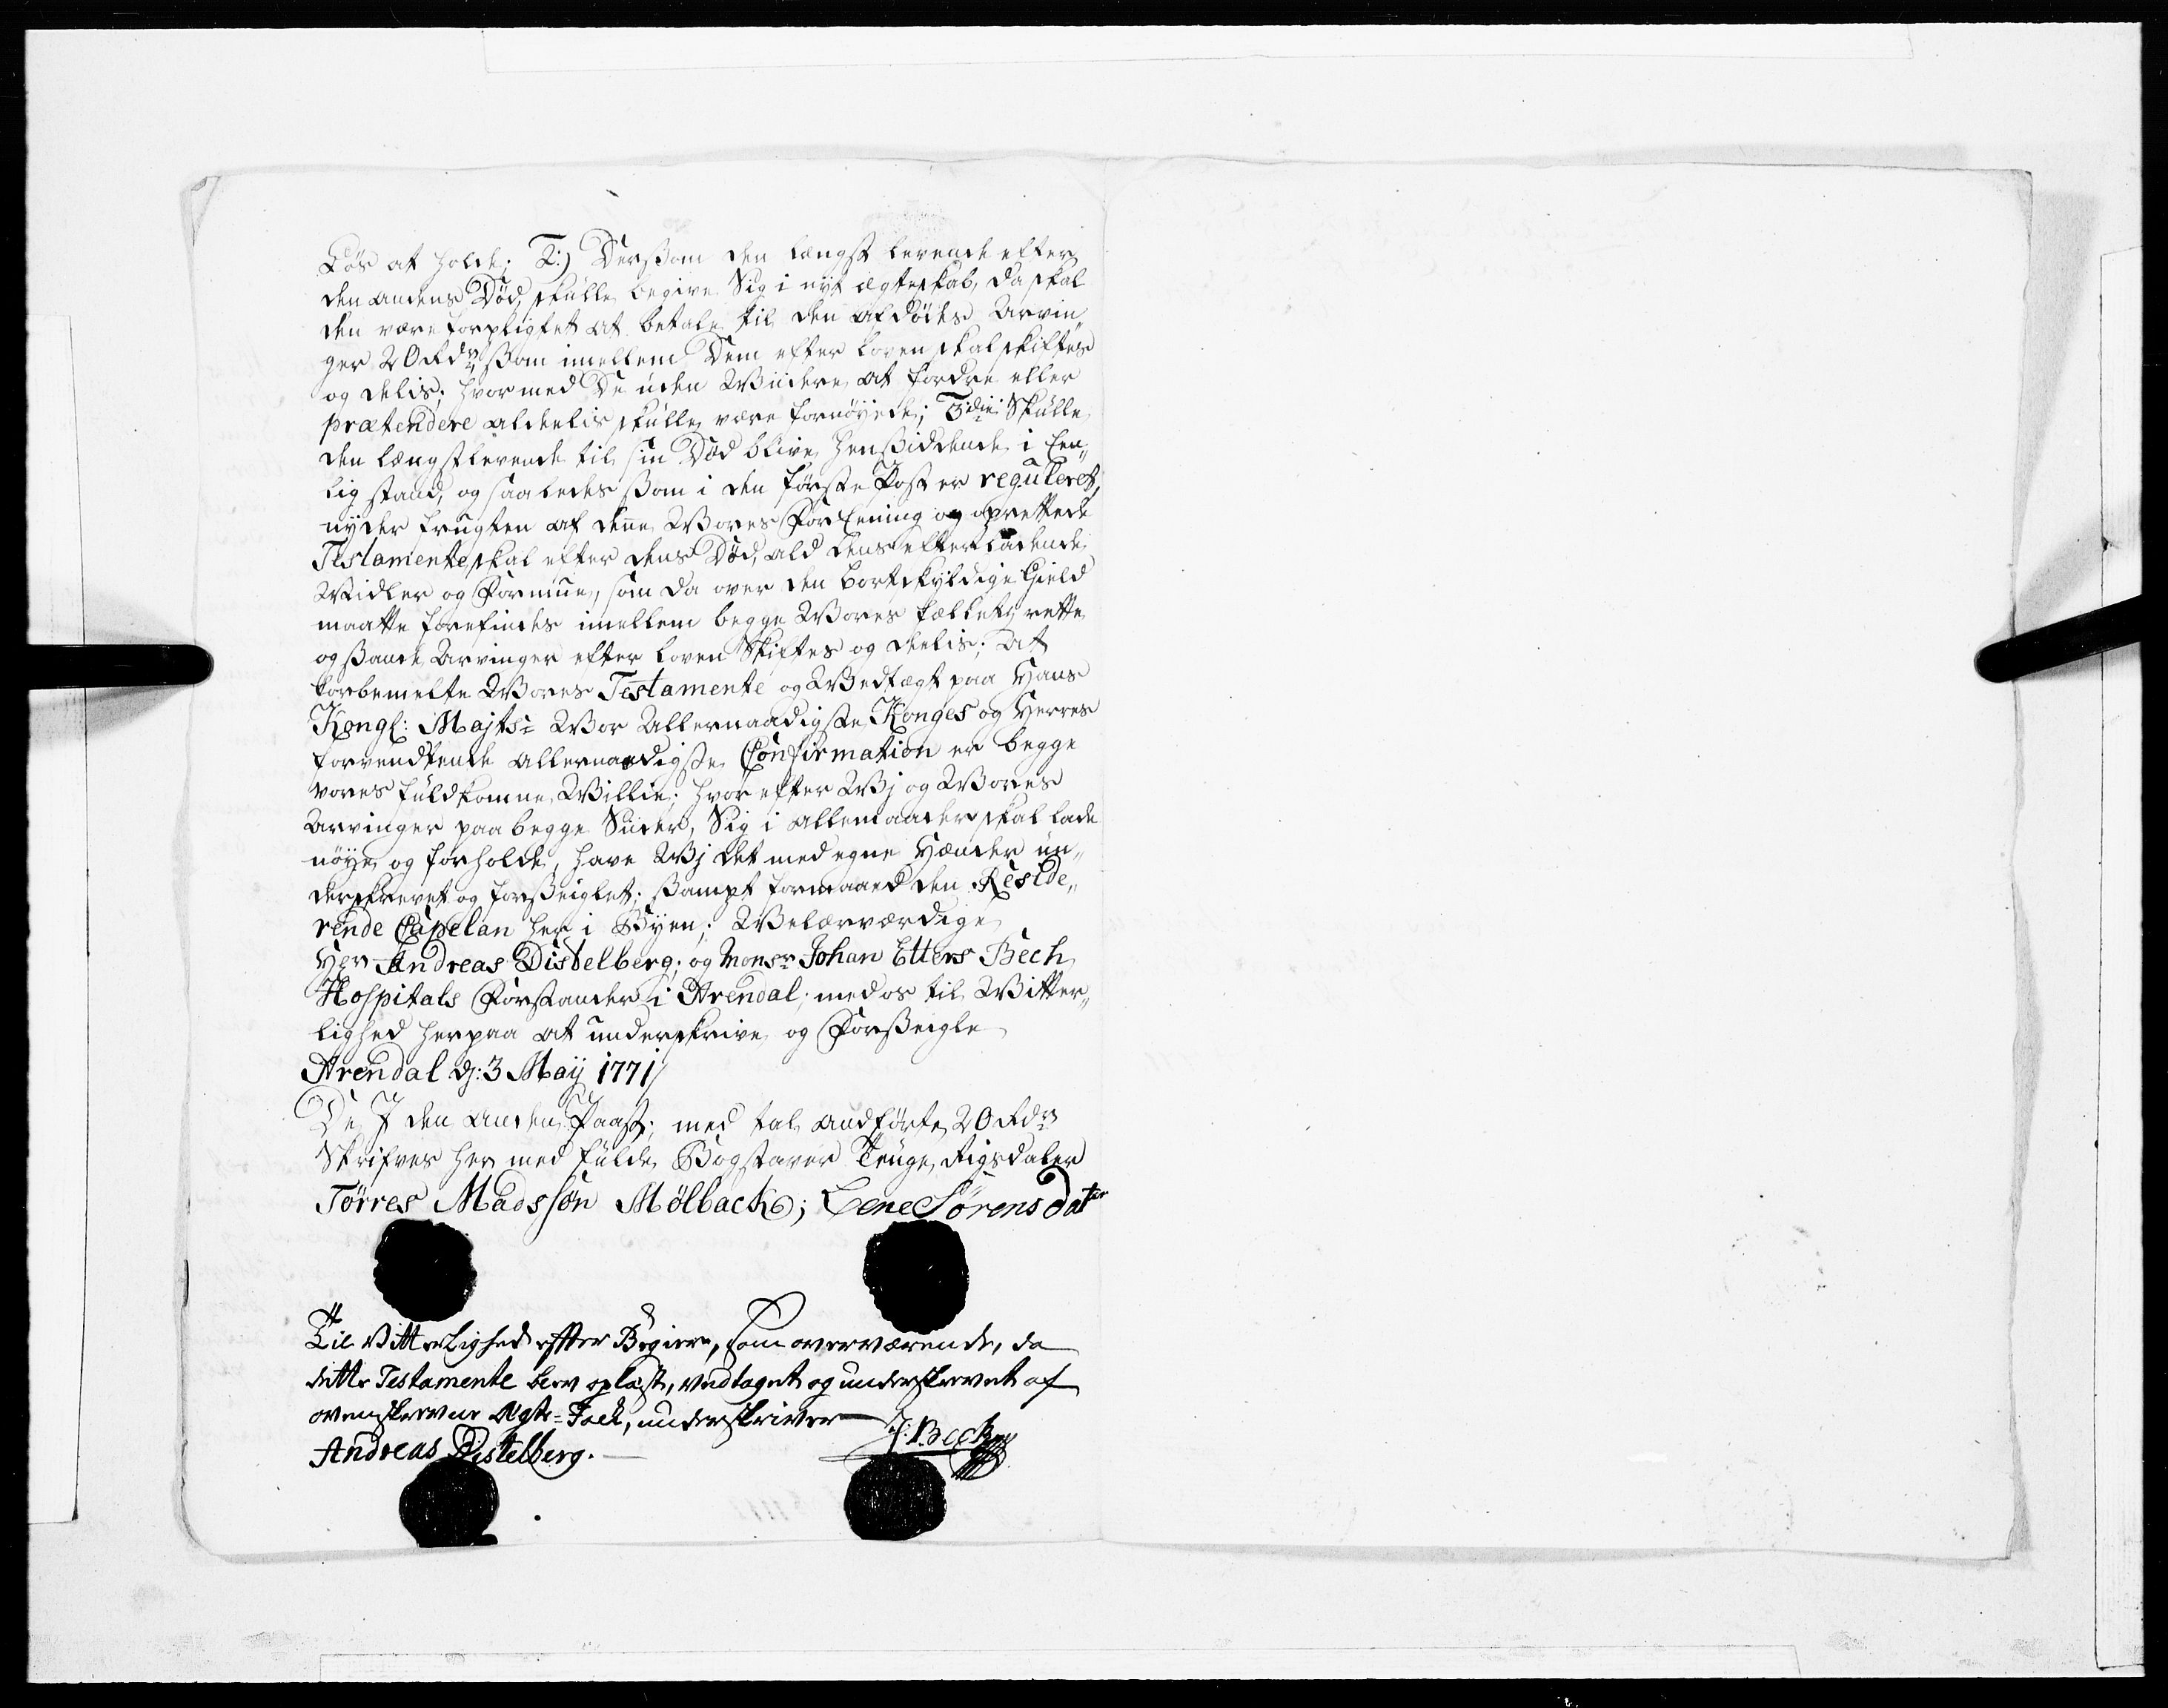 Løs at holde; 2:) Dersom den længst levende efter
den andens Død, skulle begive Sig i nyt ægteskab, da skal
den være forpligtet at betale til den afdødes Arvin„
ger 20 Rdr som imellem Dem efter loven skal skiftes
og delis; hvormed De uden Wiidere at fordre eller
prætendere aldeelis skulle være fornøyede; 3die Skulle
den længstlevende til sin Død blive hensiddende i Een„
lig stand, og saaledes som i den første Post er reguleret,
nyder frugten af denne Wores Foreening og oprettede
Testamente, skal efter dens Død, ald dens efterladende
Midler og Formue, som da over den bortskyldige Gield
maatte forefindes imellem begge Wores fælleds rette
og sande Arvinger efter loven Skiftes og deelis; At
forbemelte Wores Testamente og Wedtægt paa Hans
Kongl: Majts: Wor Allernaadigste Konges og Herres
forvendtende Allernaadigste Confirmation er begge
vores fuldkomne Willie; hvor efter Wj og Wores
Arvinger paa begge Siider, Sig i allemaader skal lade
nøye og forholde, have Wj det med egne Hænder un„
derskrevet og forseiglet; sampt formaaed den Reside„
rende Capelan her i Byen; Welærværdige
Her Andreas Distelberg; og Monsr Johan Etters Bech
Hospitals Forstander i Arendal; med os til Witter„
lighed herpaa at underskrive og Forseigle
Arendal d: 3 Maij 1771
De I den anden Paast; med tal andførte 20 Rdr
Skrifves her med fulde Bogstaver Tyuge Rigsdaler
Törres Madssön Mölback; Lene Sörensdatr
Til Vitterlighed efter Begiær, som overværende, da
dette Testamente blev oplæst, vedtaget og underskrevet af
ovenskrevne Ægte-Folk, underskriver
J: Beck
Andreas Distelberg.